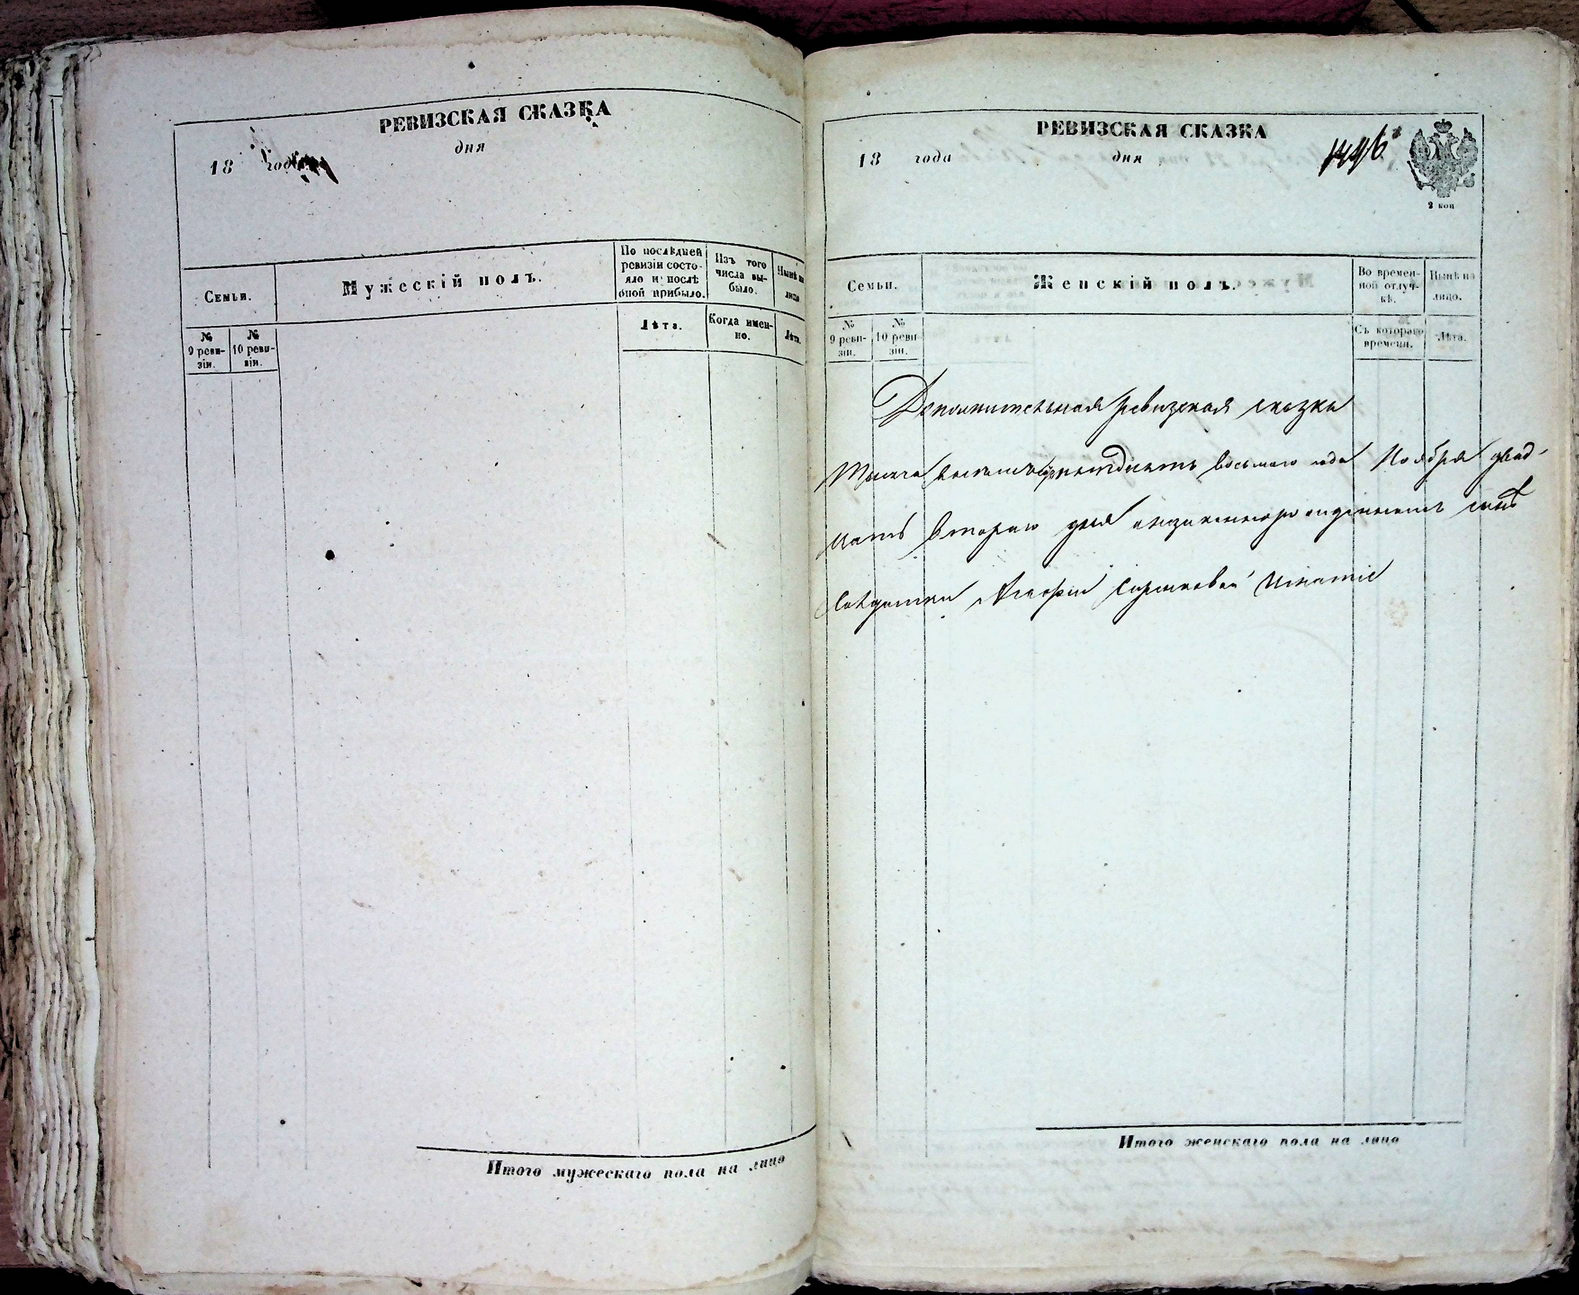 РЕВИЗСКАЯ СКАЗКА
18 года дня
Семьи.
Мужескій полъ.
По послѣдней ревизіи состояло и послѣ оной прибыло.
Изъ того числа выбыло.
Нынѣ на лицо
№ 9 ревизіи.
№ 10 ревизіи.
Лѣта.
Когда именно.
Лѣта.
Итого мужескаго пола на лицо
РЕВИЗСКАЯ СКАЗКА
18 года дня
2 коп
Семьи.
Женскій полъ.
Во временной отлучкѣ.
Нынѣ на лицо.
№ 9 ревизіи.
№ 10 ревизіи.
Съ котораго времени.
Лѣта.
Дополнительная ревизская сказка
Тысяча восемьсотъ пятдесятъ восьмаго года Ноября двад-
цать втораго дня о незаконнорожденномъ сынѣ
Солдатки Игнатіе
Итого женскаго пола на лицо